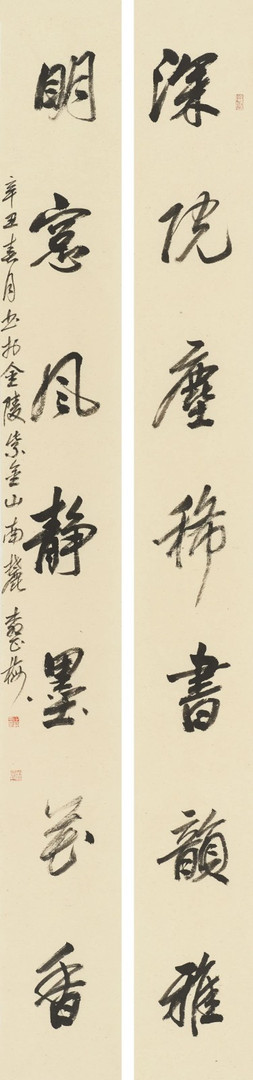 深院塵稀書韻雅
明窓风静墨花香
辛丑春月书於金陵紫金山南麓